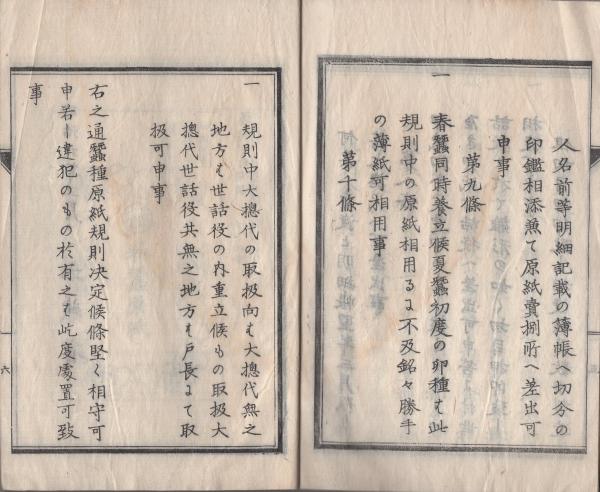 人名前等明細記載の薄帳へ切分の
印鑑相添兼て原紙賣捌所へ差出可
申事
第九條
一
春蠶同時養立候夏蠶初度の卵種も此
規則中の原紙相用るに不及銘々勝手
の薄紙可相用事
第十條
一
規則中大摠代の取扱向も大摠代無之
地方も世話役の内重立候もの取扱大
摠代世話役共無之地方も戸長にて取
扱可申事
右之通蠶種原紙規則决定候條堅く相守可
申若し違犯のもの於有之も屹度處置可致
事
六